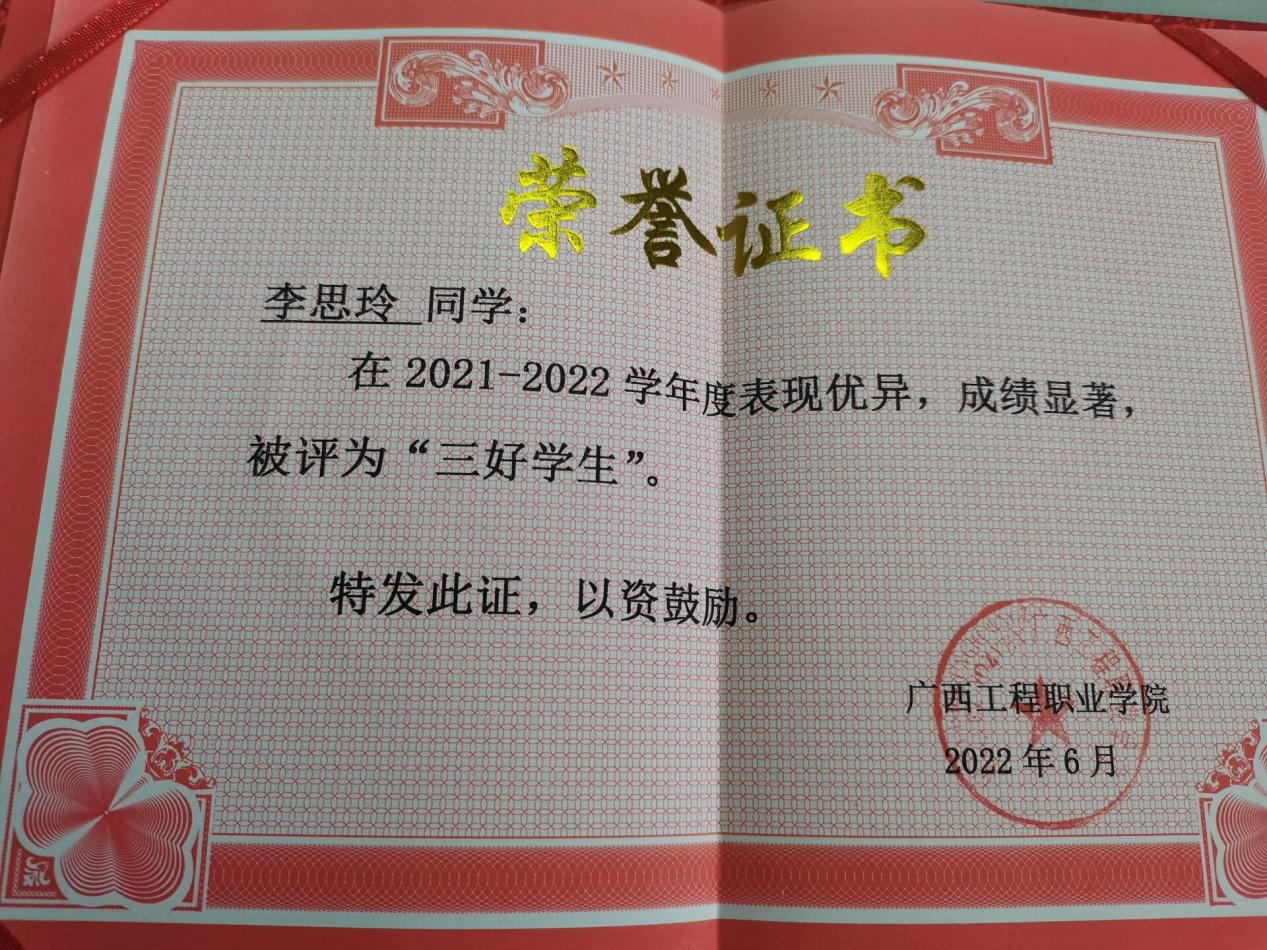 荣誉证书
李思玲 同学：
在 2021-2022 学年度表现优异，成绩显著，
被评为“三好学生”。
特发此证，以资鼓励。
广西工程职业学院
2022 年 6 月
广西工程